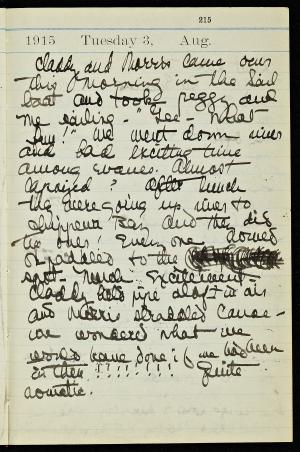 215
1915 Tuesday 3, Aug.
Claddy and Norris came over
this morning in the sail
boat and took Peggy and
me sailing - "Gee - what
fun!" We went down river
and had exciting time
among canoes. Almost
capsized? After lunch
they were going up river to
and they did
too! Everyone
or paddled to the
spot. Much excitement
Claddy held pipe aloft in air
and Norris straddled canoe -
we wondered what we
would have done if we had been
in them!!!!!!! Quite
aquatic.